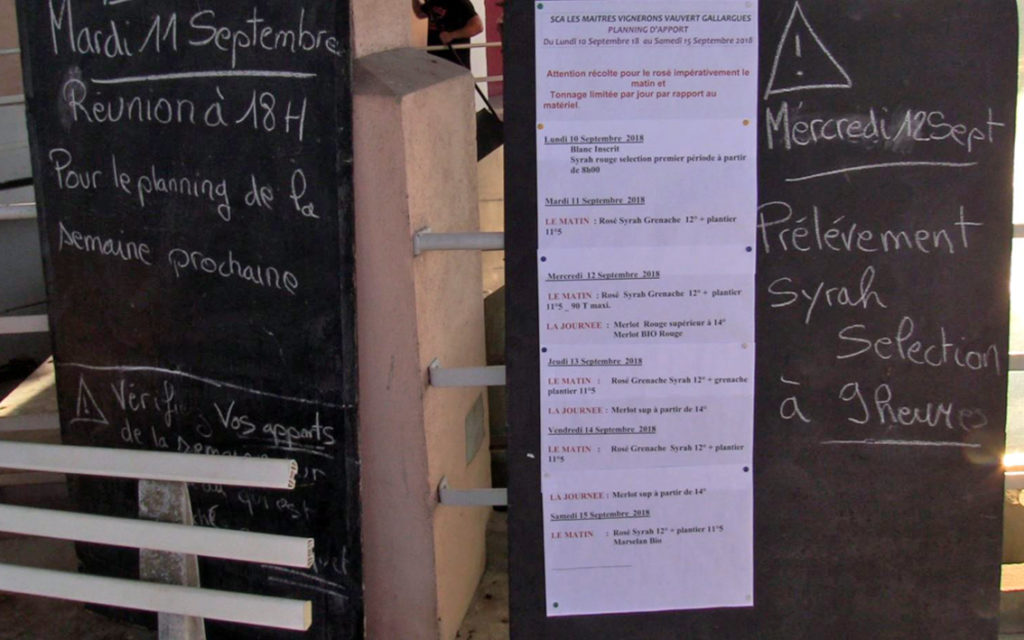 Mardi 11 Septembre
Réunion à 18H
Pour le planning de la
semaine prochaine
Vérifiez Vos apports
de la semaine
qui est
SCA LES MAITRES VIGNERONS VAUVERT GALLARGUES
PLANNING D'APPORT
Du Lundi 10 Septembre 18 au Samedi 15 Septembre 2018
Attention récolte pour le rosé impérativement le
matin et
Tonnage limitée par jour par rapport au
matériel.
Lundi 10 Septembre 2018
Blanc Inscrit
Syrah rouge selection premier période à partir
de 8h00
Mardi 11 Septembre 2018
LE MATIN : Rosé Syrah Grenache 12° + plantier
11°5
Mercredi 12 Septembre 2018
LE MATIN : Rosé Syrah Grenache 12° + plantier
11°5 _ 90 T maxi.
LA JOURNEE : Merlot Rouge supérieur à 14°
Merlot BIO Rouge
Jeudi 13 Septembre 2018
LE MATIN : Rosé Grenache Syrah 12° + grenache
plantier 11°5
LA JOURNEE : Merlot sup à partir de 14°
Vendredi 14 Septembre 2018
LE MATIN : Rosé Grenache Syrah 12° + plantier
11°5
LA JOURNEE : Merlot sup à partir de 14°
Samedi 15 Septembre 2018
LE MATIN : Rosé Syrah 12° + plantier 11°5
Marselan Bio
!
Mércredi 12 Sept
Prélévement
Syrah
Selection
à 9heures